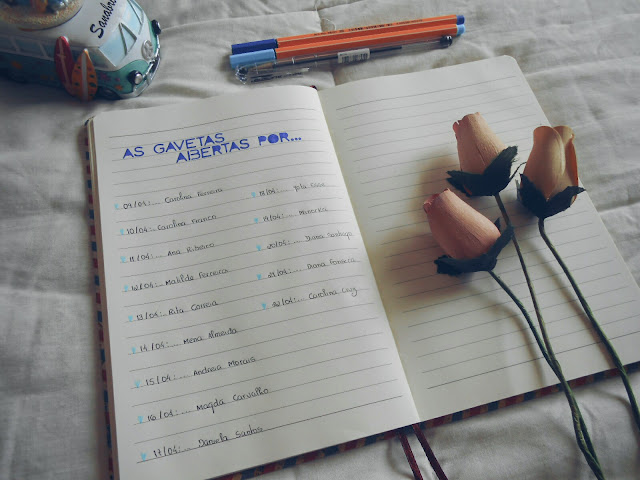 Sanabria
AS GAVETAS
ABERTAS POR...
09/04:... Carolina Ferreira
10/04: Carolina Franco
11/04:... Ana Ribeiro
12/04:... Matilde Ferreira
13/04: Rita Correia
14/04:... Mena Almeida
15/04:... Andreia Morais
16/04:... Magda Carvalho
17/04:... Daniela Santos
18/04:...
19/04:...
20/04:... Joana Santiago
21/04:... Diana Fonseca
22/04:... Carolina Cruz